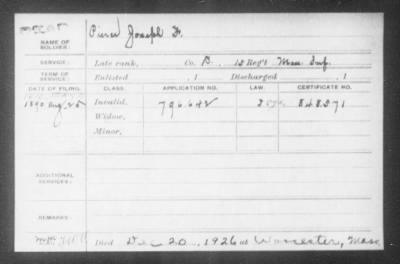 NAME OF SOLDIER: Pierce Joseph F.
SERVICE: Late rank, Co. B, 15 Reg't Mass Inf.
TERM OF SERVICE: Enlisted , 1 Discharged , 1
DATE OF FILING. CLASS. APPLICATION NO. LAW. CERTIFICATE NO.
1890 Aug 25 Invalid, 796.642 848271
Widow,
Minor,
ADDITIONAL SERVICES:
REMARKS:
Died Dec 20, 1926 at Worcester, Mass